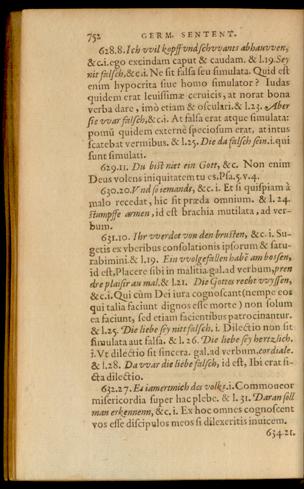 752 GERM. SENTENT.
628.8. Ich vvil kopff vnd schvvants abhauvven,
&c.i. ego excindam caput & caudam. & l.19. Sey
nit falsch, &c.i. Ne sit falsa seu simulata. Quid est
enim hypocrita siue homo simulator? Iudas
quidem erat leuissimæ ceruicis, at norat bona
verba dare, imò etiam & osculari. & l.23. Aber
sie vvar falsch, &c.i. At falsa erat atque simulata:
pomũ quidem externè speciosum erat, at intus
scatebat vermibus. & l.25. Die da falsch sein.i. qui
sunt simulati.
629.11. Du bist niet ein Gott, &c. Non enim
Deus volens iniquitatem tu es. Psa.5.v.4.
630.20. Vnd so iemands, &c. i. Et si quispiam à
malo recedat, hic sit præda omnium. & l. 24.
stumpffe armen, id est brachia mutilata, ad ver-
bum.
631.10. Ihr vverdet von den brusten, &c. i. Su-
getis ex vberibus consolationis ipsorum & satu-
rabimini. & l.19. Ein vvolgefallen habẽ am bossen,
id est, Placere sibi in malitia. gal. ad verbum, pren
dre plaisir au mal. & l.21. Die Gottes recht vvyssen,
&c.i. Qui cùm Dei iura cognoscant (nempe eos
qui talia faciunt dignos esse morte) non solum
ea faciunt, sed etiam facientibus patrocinantur.
& l.25. Die liebe sey nitt falsch, i. Dilectio non sit
simulata aut falsa. & l. 26. Die liebe sey hertzlich.
i. Vt dilectio sit sincera. gal. ad verbum. cordiale.
& l.28. Da war die liebe falsch, id est, Ibi erat fi-
cta dilectio.
632.27. Es iamert mich des volks.i. Commoueor
misericordia super hac plebe. & l. 31. Daran soll
man erkennenn, &c. i. Ex hoc omnes cognoscent
vos esse discipulos meos si dilexeritis inuicem.
634.21.